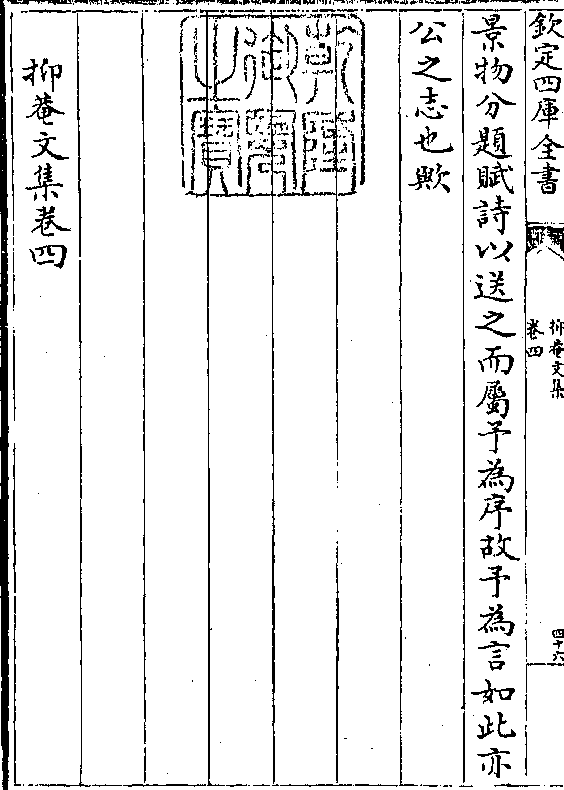 欽定四庫全書
抑菴文集
卷四
四十六
景物分題賦詩以送之而屬予為序故予為言如此亦
公之志也歟
乾隆御覽之寶
抑菴文集卷四